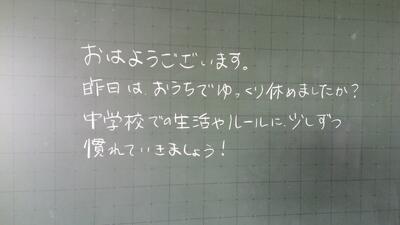 おはようございます。
昨日は、おうちでゆっくり休めましたか？
中学校での生活やルールに、少しずつ
慣れていきましょう！